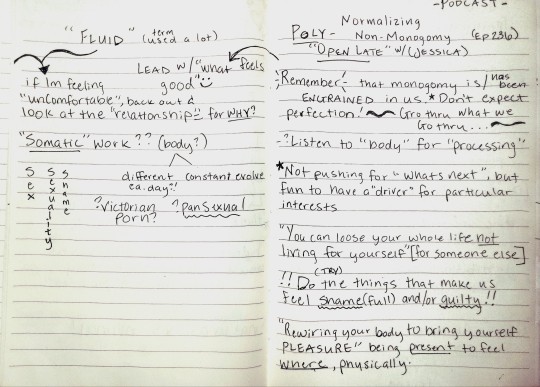 "FLUID" (term used a lot)
LEAD W/ "what feels good"
if Im feeling
"uncomfortable", back out &
look at the "relationship" for WHY?
"Somatic" work?? (body?)
different ea. day?!
constant evolve
Sex
Sexuality
Shame
?Victorian Porn?
?Pansexual
-PODCAST-
Normalizing
POLY- Non-Monogomy (Ep 236)
"OPEN LATE" w/(JESSICA)
!Remember! that monogomy is/has been
ENGRAINED in us. *Don't expect
perfection! Go thru what we
Go thru...
-?Listen to "body" for "processing"
*Not pushing for "whats next", but
fun to have a "driver" for particular
interests
"You can loose your whole life not
living for yourself" [for someone else]
!! Do (TRY) the things that make us
feel shame(full) and/or guilty!!
"Rewiring your body to bring yourself
PLEASURE" being present to feel
where, physically.